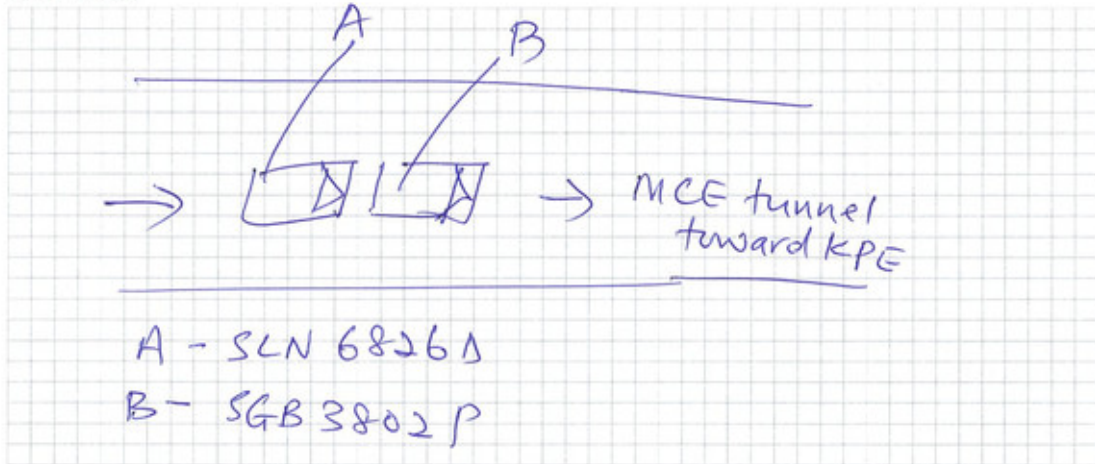 A
B
MCE tunnel
toward KPE
A - SLN 6826D
B - SGB 3802P